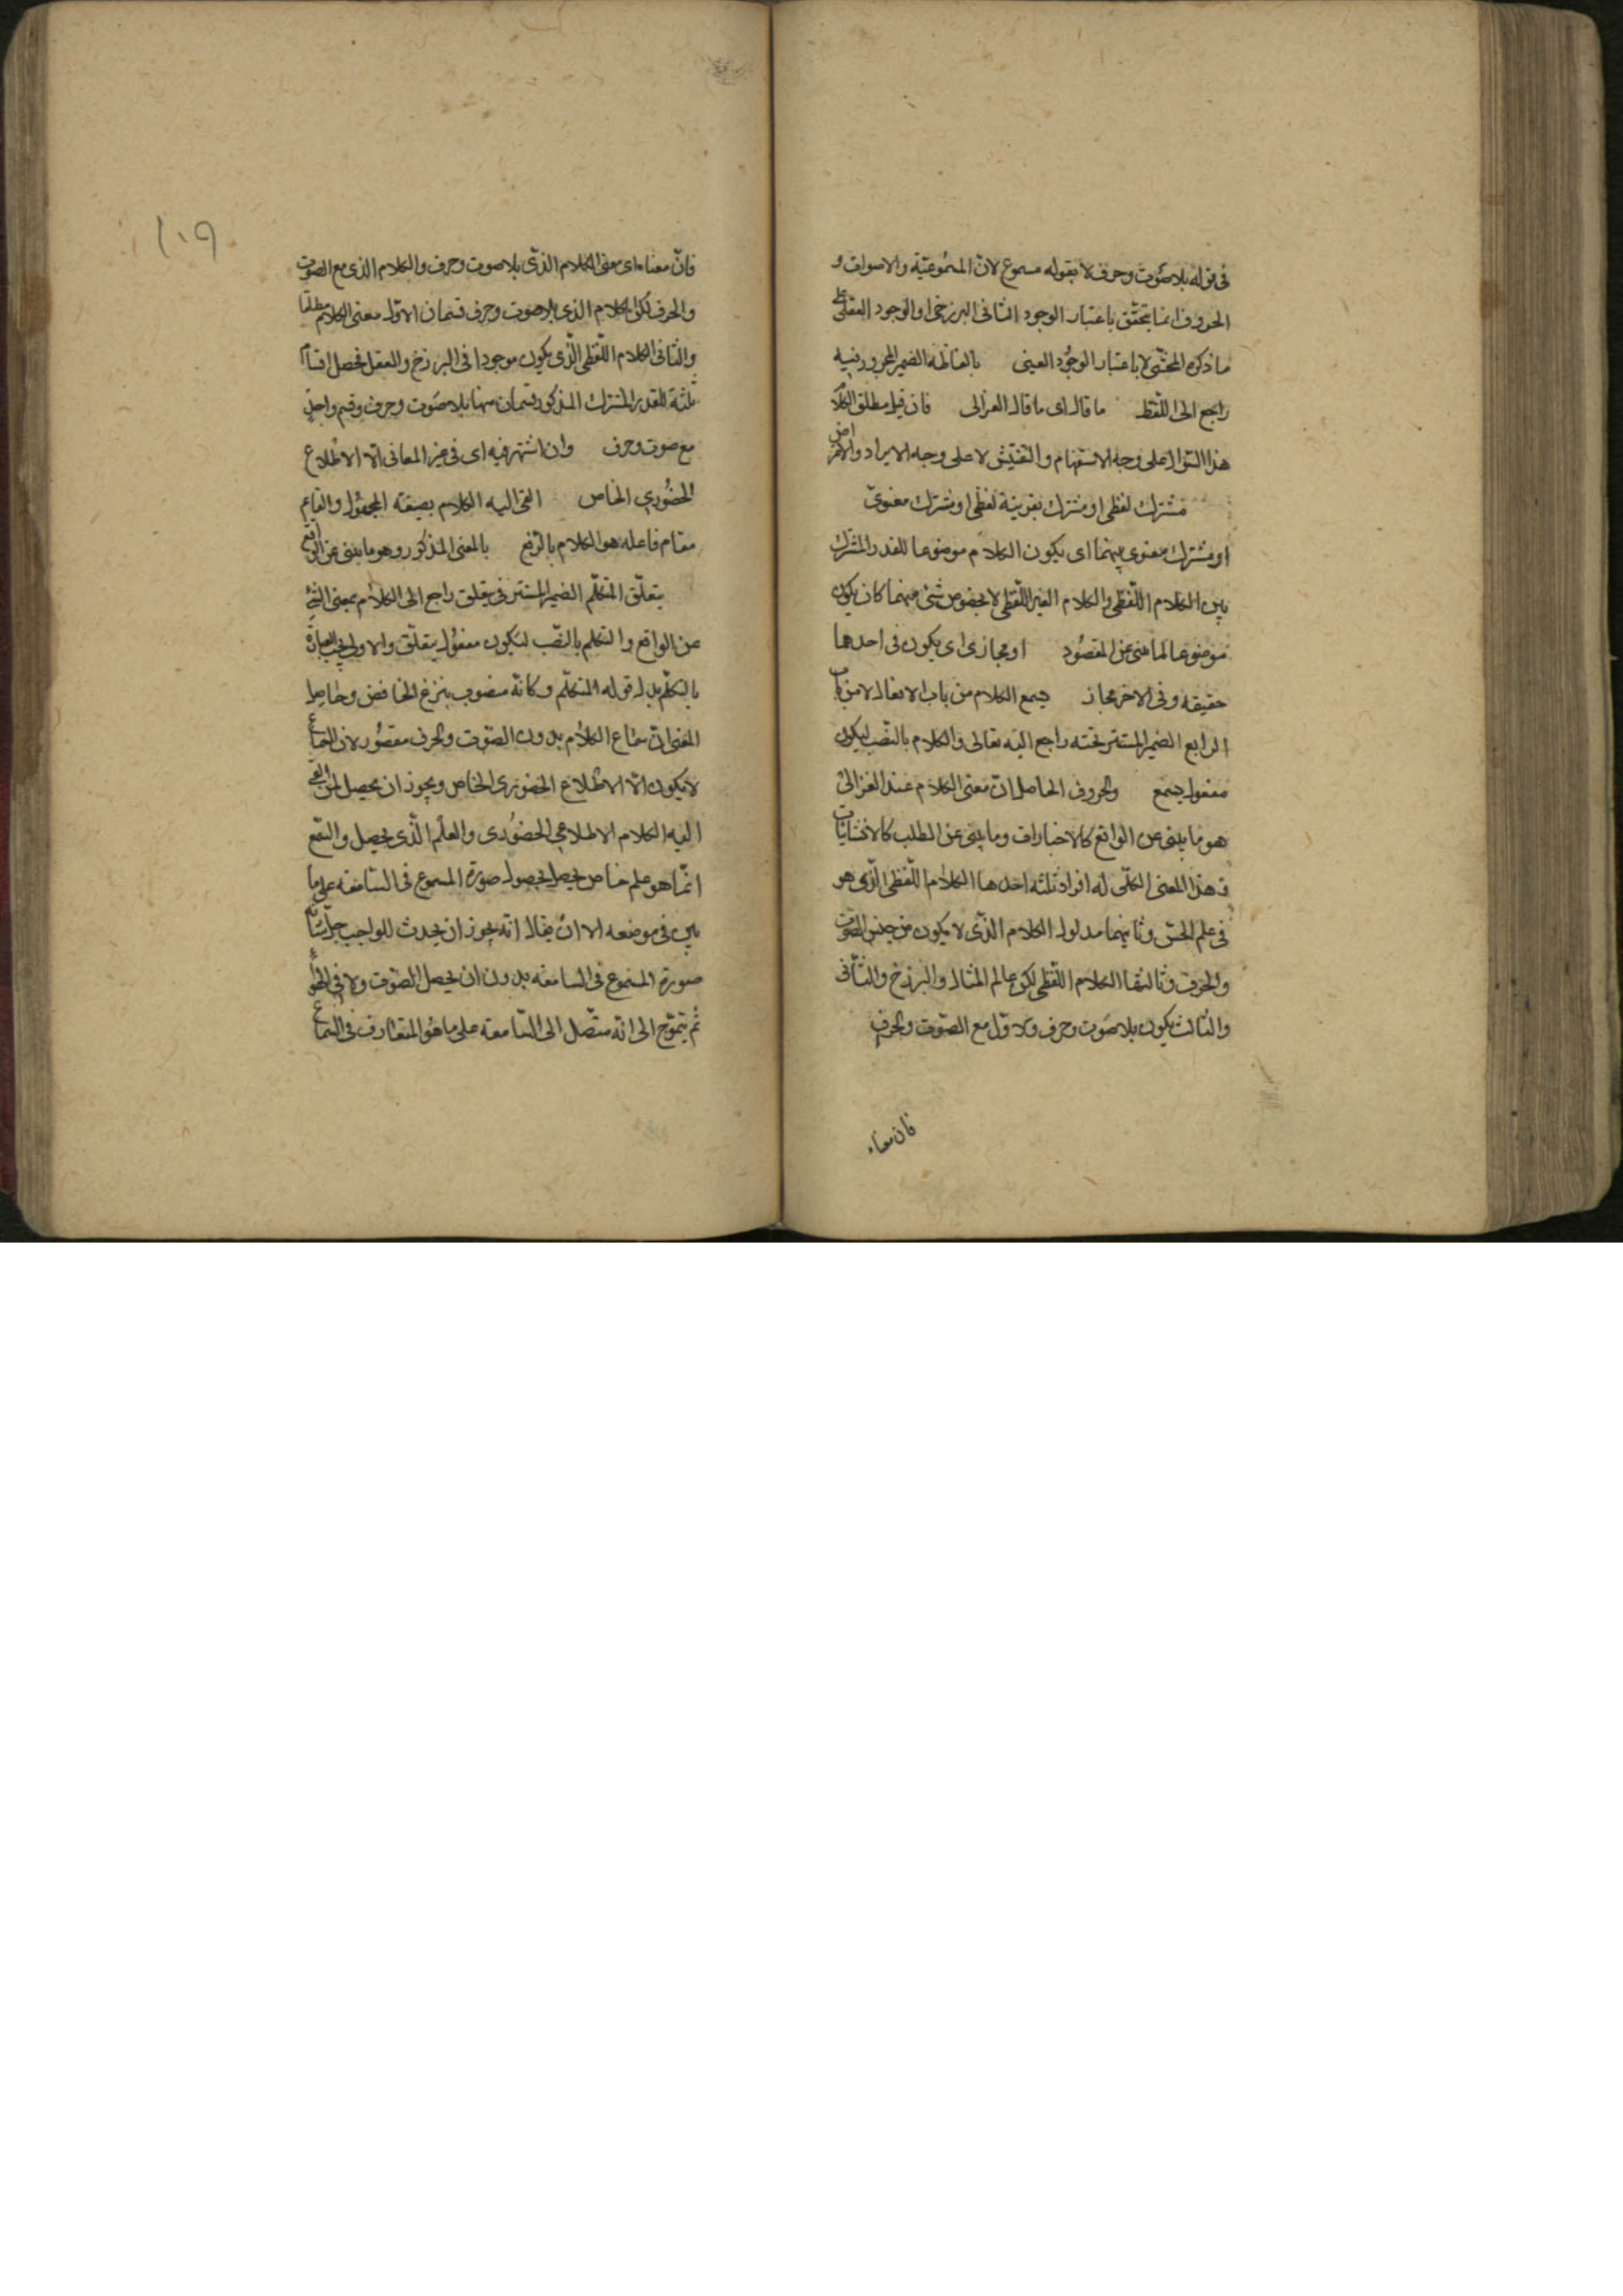 في قوله بلا صوت وحرف لا بقوله مسموع لانّ المسموعيّة والاصوات و
الحروف انما يتحقّق باعتبار الوجود الثاني البرزخي او الوجود العقلي على
ما ذكره المحشّي لا باعتبار الوجود العيني بالفاظه الضمير المجرور فيه
راجع الى اللّفظ ما قال اى ما قال الغزالى فان قيل مطلق الكلام
هذا السّؤال على وجه الاستفهام والتفتيش لا على وجه الايراد والاعتراض
مشترك لفظى او مشترك بقرينة لفظى او مشترك معنوىّ
او مشترك معنوى بينهما اى يكون الكلام موضوعا للقدر المشترك
بين الكلام اللّفظى والكلام الغير اللّفظى لا بخصوص شئ منهما كان يكون
موضوعا لما ينبئ عن المقصود او مجازى اى يكون فى احدهما
حقيقة وفى الاخر مجاز يسمع الكلام من باب الافعال لا من باب
الرابع الضمير المستتر تحته راجع اليه تعالى والكلام بالنّصب ليكون
مفعول يسمع والحروف الحاصل انّ معنى الكلام عند الغزالىّ
هو ما ينبئ عن الواقع كالاخبارات وما ينبئ عن الطلب كالانشائيات
فهذا المعنى الكلّى له افراد ثلثة احدها الكلام اللّفظى الّذى هو
فى علم الحسّ وثانيهما مدلول الكلام الّذى لا يكون من جنس الصّوت
والحرف وثالثها الكلام اللّفظى لكن عالم المثال والبرزخ والثّانى
والثّالث يكون بلا صوت وحرف والاوّل مع الصّوت والحرف
فان معناه
١٠٩
فانّ معناه اى معنى الكلام الذّى بلا صوت وحرف والكلام الذى مع الصوت
والحرف لكن الكلام الذى بلا صوت وحرف قسمان الاوّل معنى الكلام مطلقا
والثانى الكلام اللّفظى الّذى يكون موجودا فى البرزخ والعقل فحصل اقسام
ثلثة للقدر المشترك المذكور قسمان منها بلا صوت وحرف وقسم واحد
مع صوت وحرف وان اشتهر فيه اى فى غير المعانى الّا الاطّلاع
الحضورى الخاص القى اليه الكلام بصيغة المجهول والقايم
مقام فاعله هو الكلام بالرّفع بالمعنى المذكور وهو ما ينبئ عن الواقع
يتعلّق المتكلّم الضمير المستتر فى يتعلق راجع الى الكلام بمعنى المنبئ
عن الواقع والتكلم بالنّصب لتكون مفعول يتعلّق والاولى بحسب العبارة
بالتكلّم بدل قوله المتكلّم وكانّه منصوب بنزع الخافض وحاصل
المعنى انّ سماع الكلام بدون الصّوت والحرف مقصور لان السّماع
لا يكون الّا الاطّلاع الحضورى الخاص ويجوز ان يحصل لمن القى
اليه الكلام الاطلاعى الحضورى والعلم الّذى يحصل والسّمع
انّما هو علم خاص يحصل بحصول صورة المسموع فى السّامعة على ما
بيّن فى موضعه الا ان يقال انّه يجوز ان يحدث للواجب جلّ شانه
صورة المسموع فى السّامعة بدون ان يحصل الصّوت ولا فى الهواء
ثم يتموّج الى انّه متّصل الى السّامعة على ما هو المتعارف فى السّماع